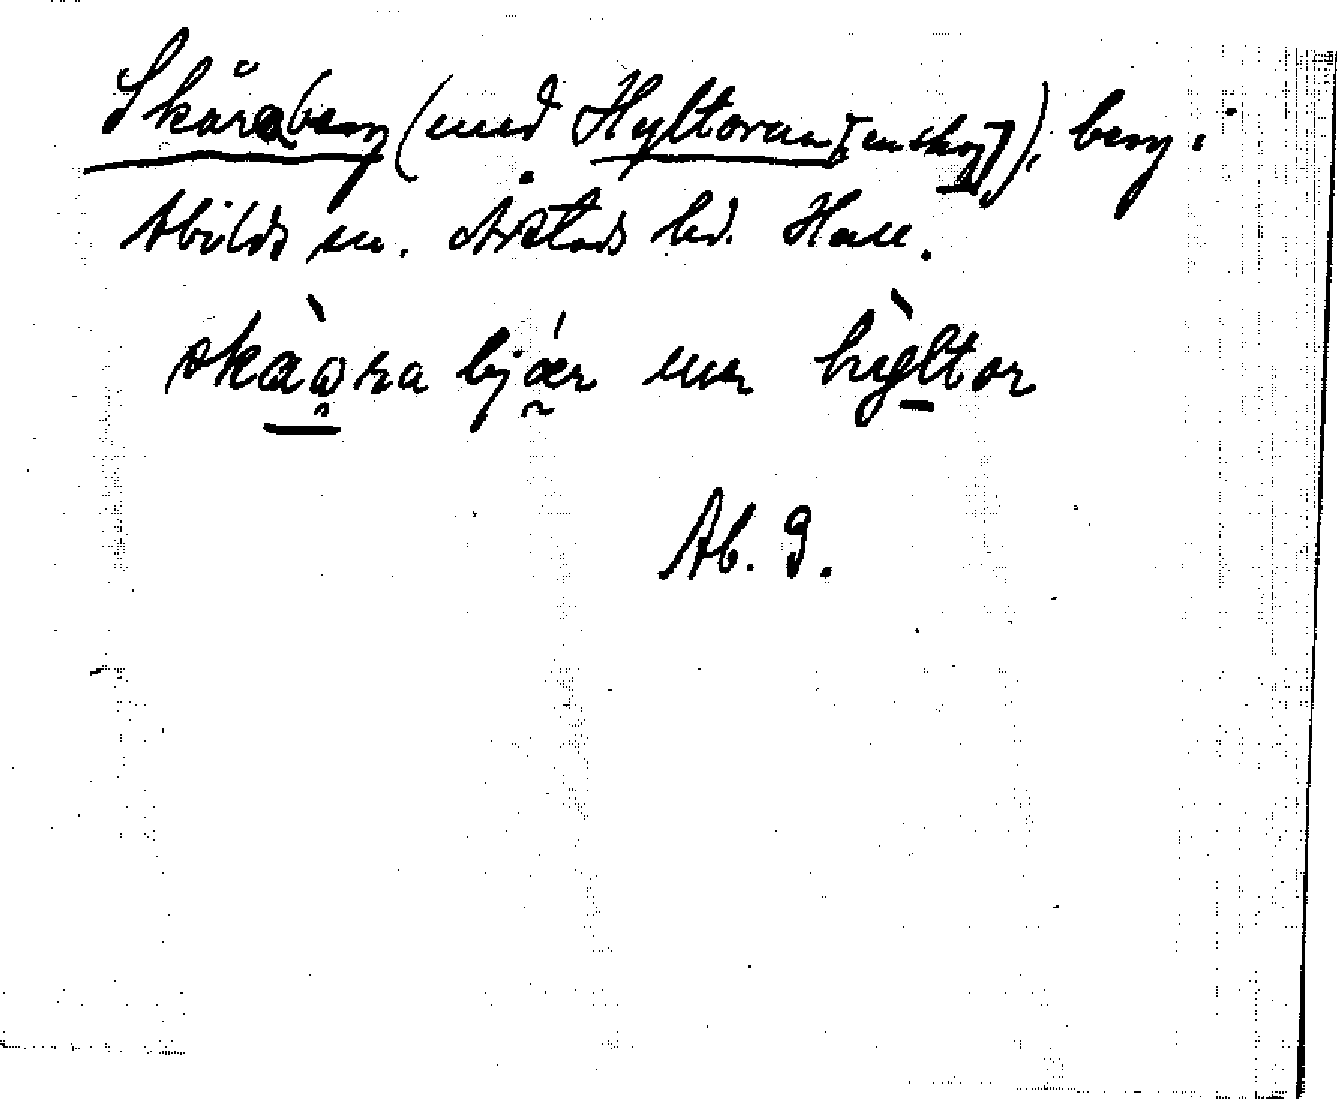 Skåraberg (med Hyltoran [en skog]), berg.
Abilds sn. Årstads hd. Hall.
skàora bjǽr mæ hỳltor
Ab. 9.